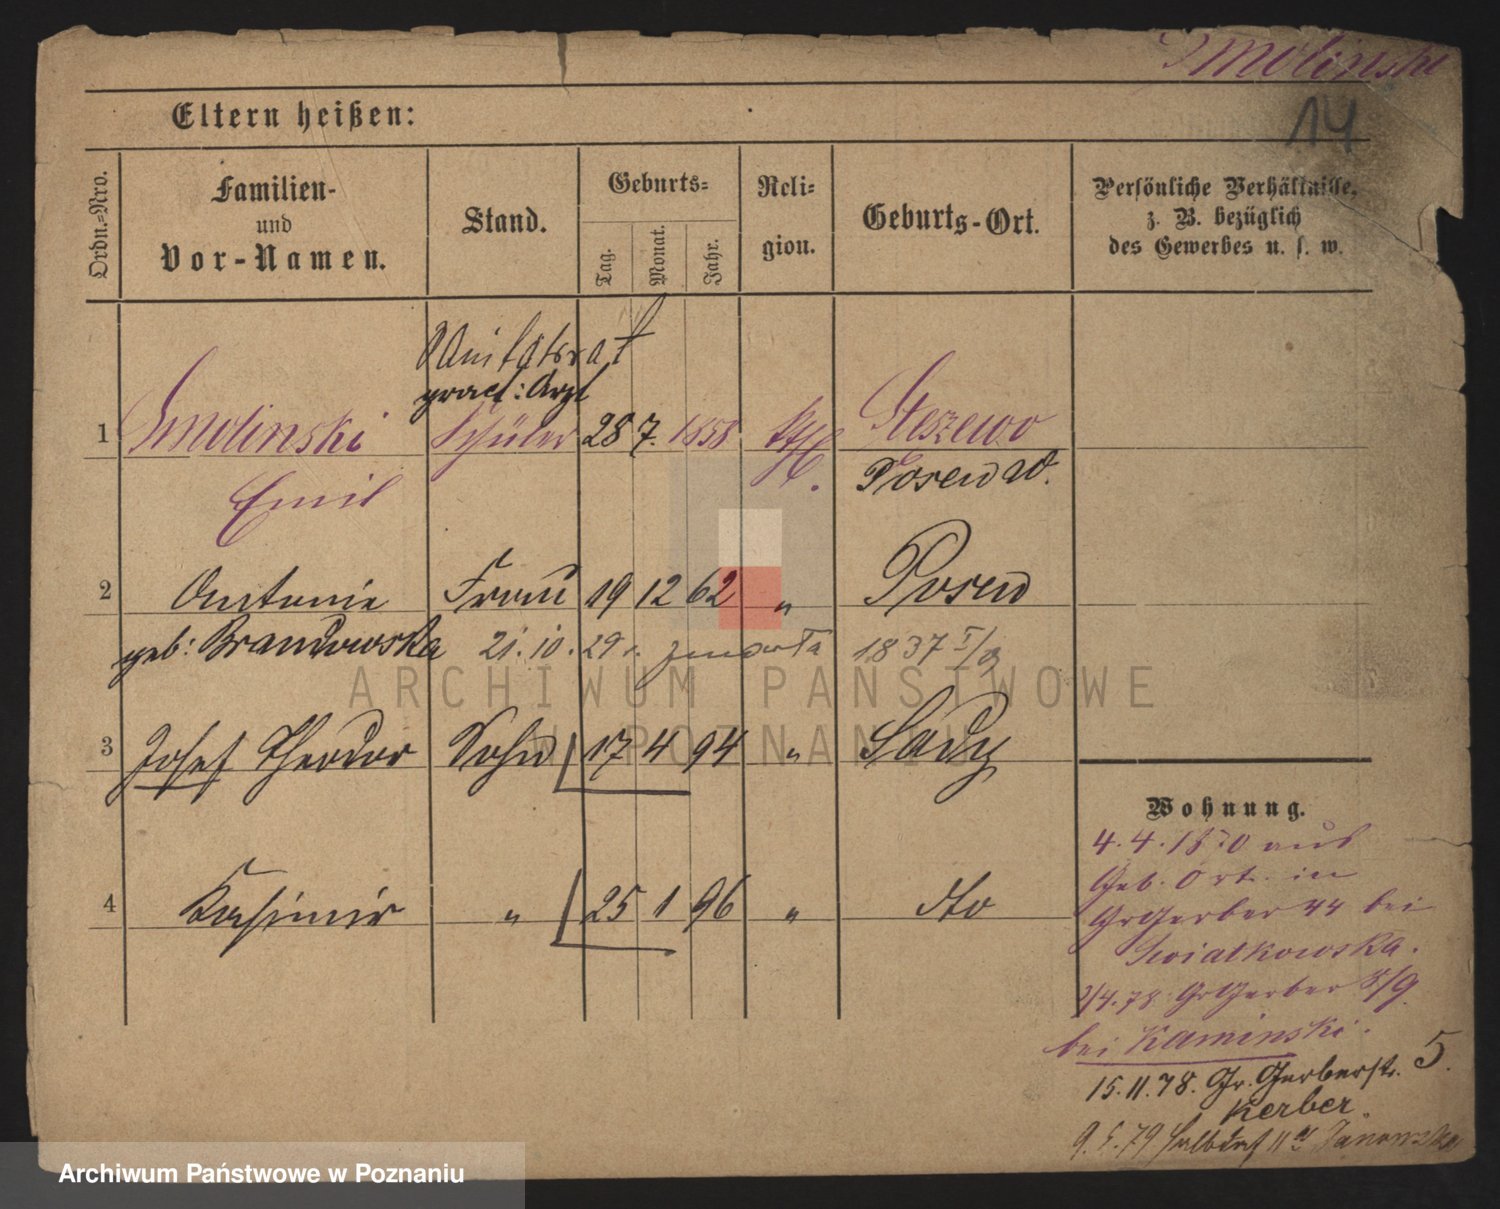 Smolinski
14
Eltern heißen:
Ordn.=Nro.
Familien-
und
Vor-Namen.
Stand.
Geburts=
Tag.
Monat.
Jahr.
Reli=
gion.
Geburts-Ort.
Persönliche Verhältnisse,
z. B. bezüglich
des Gewerbes u. s. w.
Sanitätsrat
pract: Arzt
1 Smolinski Schüler 28 7. 1858 kth. Steszewo
Emil Posen W.
2 Antonie Frau 19 12 62 " Posen
geb: Brandowska 21. 10. 29 1837 I/
3 Josef Theodor Sohn 17 4 94 " Sady
4 Kasimir " 25 1 96 " dto
Wohnung.
4. 4. 1870 aus
Geb. Ort. in
GrGerber 44 bei
Swiatkowska.
2/4. 78 GrGerber 8/9.
bei Kaminski.
15. 11. 78. Gr. Gerberstr. 5.
Kerber.
9. 5. 79 Halbdorf 11 Janowska
ARCHIWUM PAŃSTWOWE
W POZNANIU
Archiwum Państwowe w Poznaniu